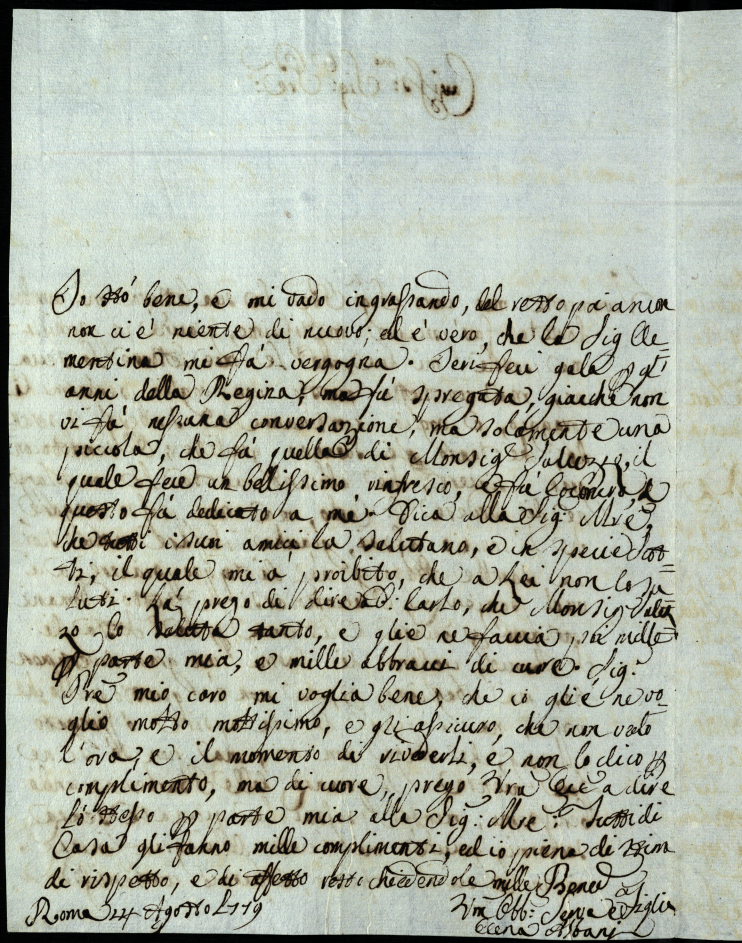 Io stò bene, e mi vado ingrassando, del resto poi ancor
non ci é niente di nuovo; ed é vero, che la Sig Cle=
mentina mi fá vergogna. Ieri feci gala p gl'
anni della Regina, ma fú spregata, giacchè non
vi fú nessuna conversazione, ma solamente una
piccola, che fú quella di Monsig.r Saluzzo, il
quale fece un bellissimo rinfresco, e fú Cocomero, e
questo fú dedicato a mé. Dica alla Sig: Mre,
che tutti i suoi amici la salutano, e in specie
ti, il quale mi á proibito, che a Lei non lo sa
luti. Lá prego di dire a D: Carlo, che Monsig Saluz
zo lo saluta tanto, e glie ne faccia poi mille
p parte mia, e mille abbracci di cuore. Sig.r
Pre mio caro mi voglia bene, che io glie ne vo-
glio molto moltissimo, e gli assicuro, che non vedo
l'ora, e il momento di rivederli, e non lo dico p
complimento, ma di cuore, prego Vra Ecc a dire
Ló stesso p parte mia alla Sig: Mre: Tutti di
Casa gli fanno mille complimenti, ed io piena di stima
di rispetto, e di affetto resto chiedendole mille Bened
Roma 24 Agosto 1779
Vra Obb: Serva e Figlia
Elena Albani